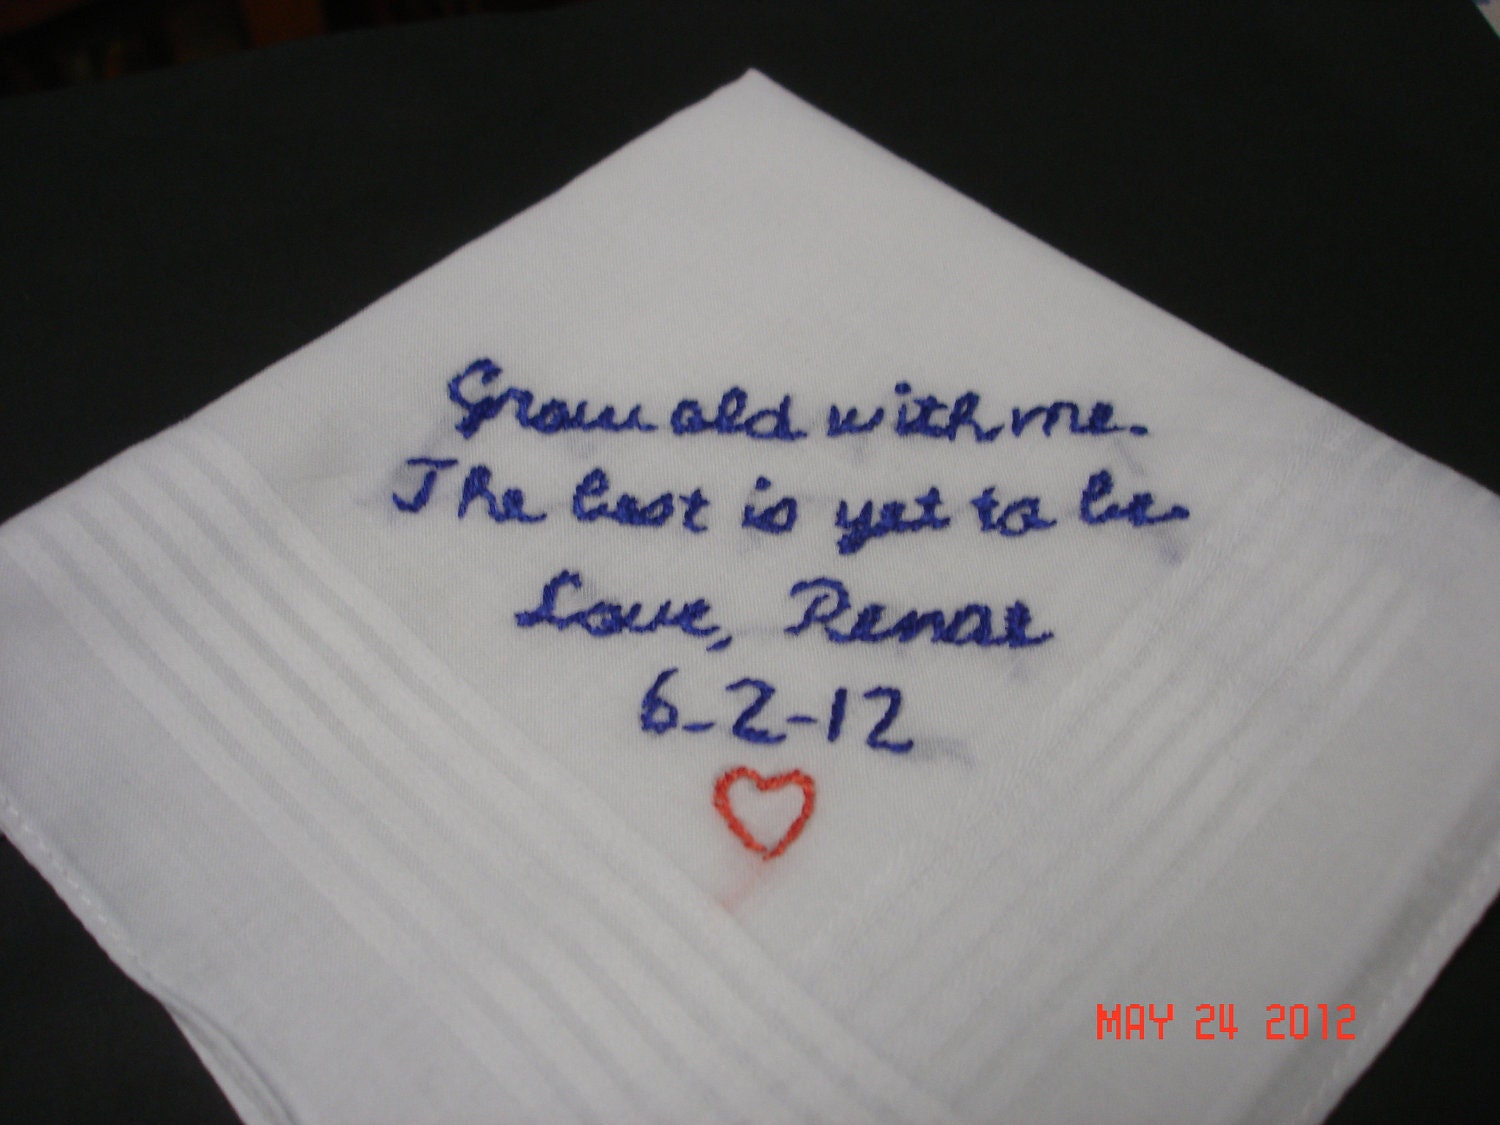 Grow old with me.
The best is yet to be.
Love, Renae
6-2-12
MAY 24 2012